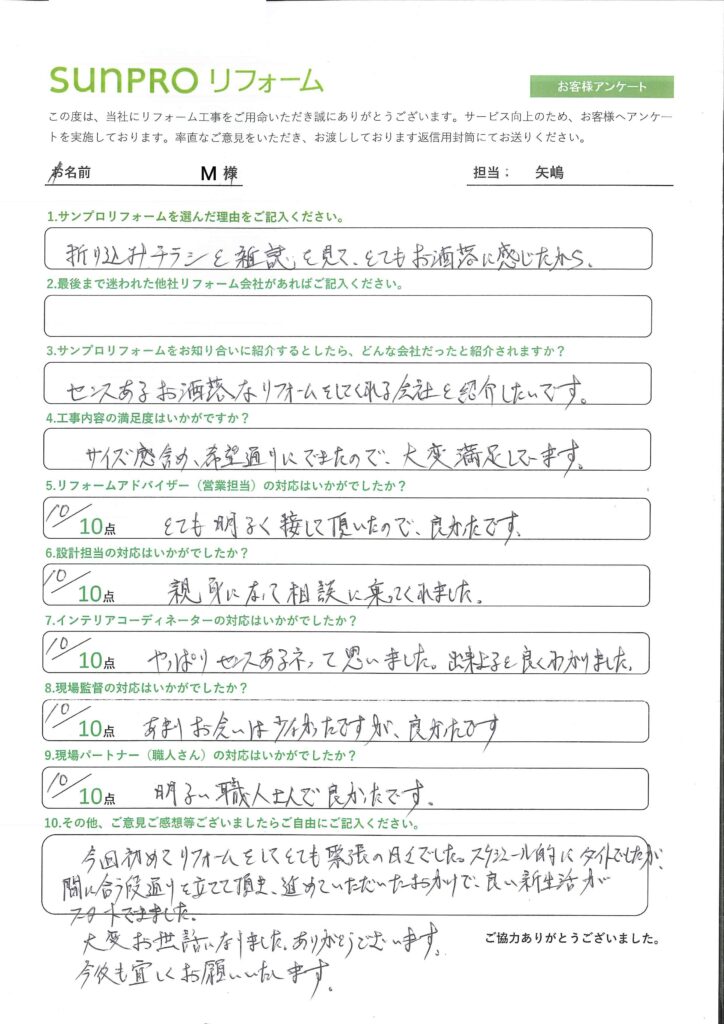 SUNPRO リフォーム
お客様アンケート
この度は、当社にリフォーム工事をご用命いただき誠にありがとうございます。サービス向上のため、お客様へアンケー
トを実施しております。率直なご意見をいただき、お渡ししております返信用封筒にてお送りください。
お名前 M 様 担当； 矢嶋
1.サンプロリフォームを選んだ理由をご記入ください。
折り込みチラシと雑誌を見て、とてもお洒落に感じたから。
2.最後まで迷われた他社リフォーム会社があればご記入ください。
3.サンプロリフォームをお知り合いに紹介するとしたら、どんな会社だったと紹介されますか？
センスあるお洒落なリフォームをしてくれる会社と紹介したいです。
4.工事内容の満足度はいかがですか？
サイズ感含め、希望通りにできたので、大変満足しています。
5.リフォームアドバイザー（営業担当）の対応はいかがでしたか？
10/10点 とても明るく接して頂いたので、良かったです。
6.設計担当の対応はいかがでしたか？
10/10点 親身になって相談に乗ってくれました。
7.インテリアコーディネーターの対応はいかがでしたか？
10/10点 やっぱりセンスあるネって思いました。出来上を良くわかりました。
8.現場監督の対応はいかがでしたか？
10/10点 あまりお会いは少なかったですが、良かったです
9.現場パートナー（職人さん）の対応はいかがでしたか？
10/10点 明るい職人さんで良かったです。
10.その他、ご意見ご感想等ございましたらご自由にご記入ください。
今回初めてリフォームをしてとても緊張の日々でした。スケジュール的にタイトでしたが、
間に合う段通りを立てて頂き、進めていただいたおかげで、良い新生活が
スタートできました。
大変お世話になりました。ありがとうございます。
ご協力ありがとうございました。
今後も宜しくお願いいたします。